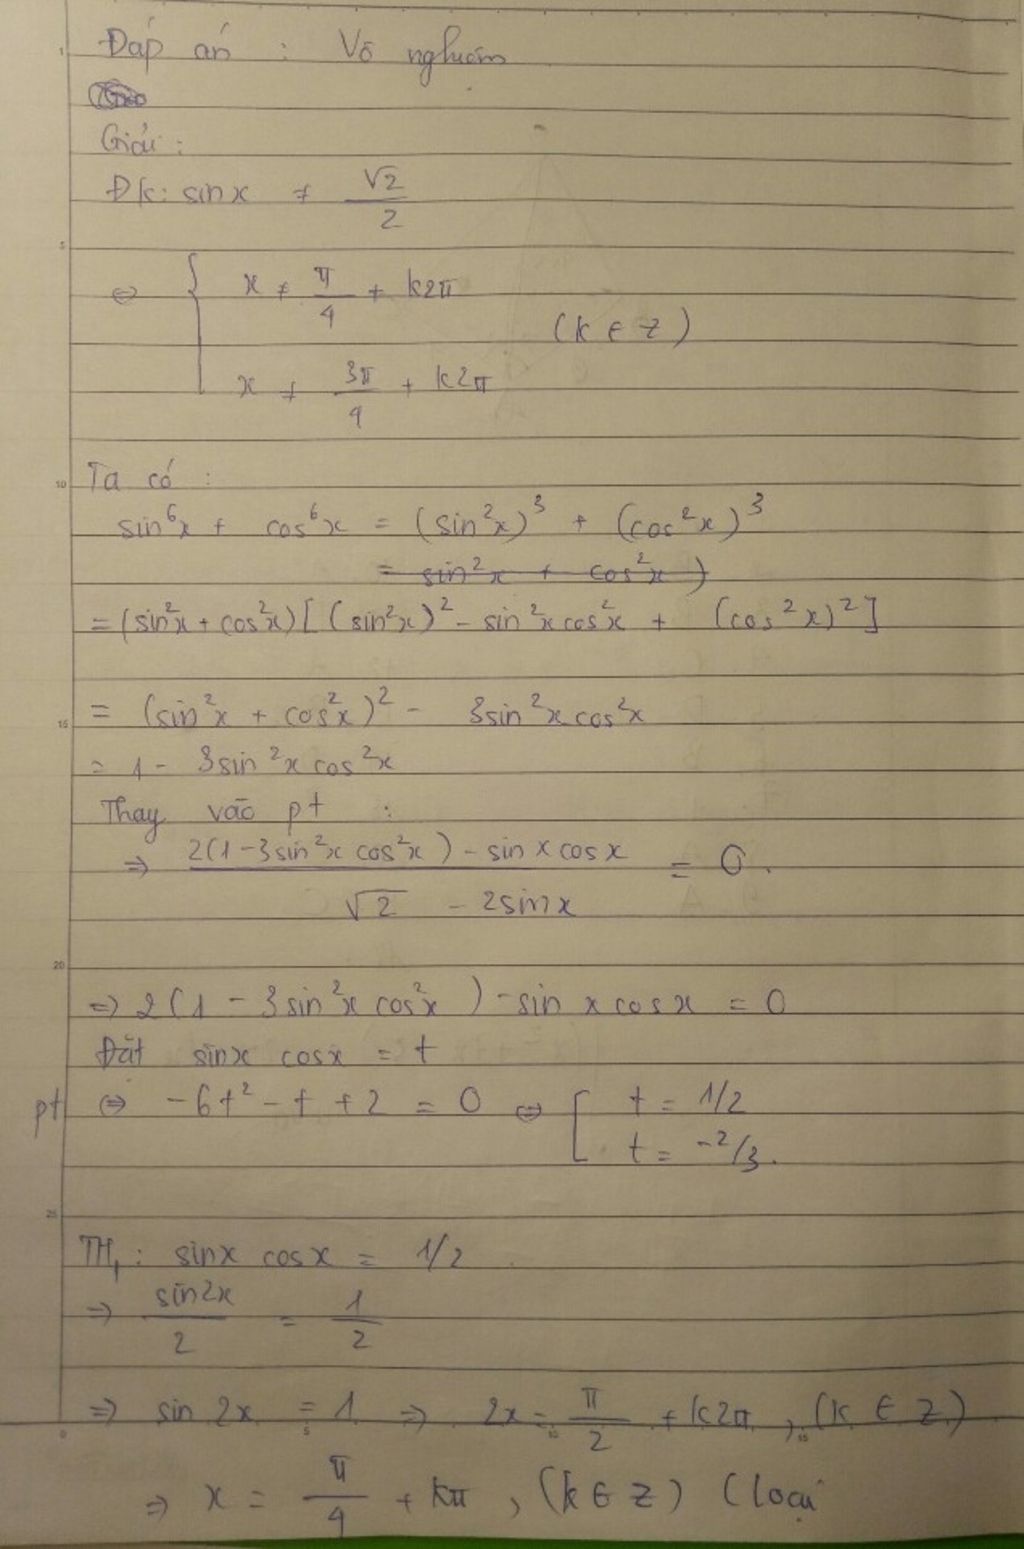 Đáp án : Vô nghiệm
Giải :
Đk: sinx ≠ √2/2
⇔ { x ≠ π/4 + k2π
(k ∈ Z)
x ≠ 3π/4 + k2π
Ta có :
sin⁶x + cos⁶x = (sin²x)³ + (cos²x)³
= sin²x + cos²x )
= (sin²x + cos²x) [ (sin²x)² - sin²x cos²x + (cos²x)² ]
= (sin²x + cos²x)² - 3sin²x cos²x
= 1 - 3sin²x cos²x
Thay vào pt :
⇒ 2(1 - 3sin²x cos²x) - sin x cos x / √2 - 2sinx = 0.
⇒ 2(1 - 3sin²x cos²x) - sin x cosx = 0
Đặt sinx cosx = t
pt ⇔ -6t² - t + 2 = 0 ⇔ [ t = 1/2
t = -2/3.
TH₁ : sinx cosx = 1/2
⇒ sin2x/2 = 1/2
⇒ sin 2x = 1 ⇒ 2x = π/2 + k2π, (k ∈ Z)
⇒ x = π/4 + kπ, (k ∈ Z) (loại
5
10
15
20
25
0
5
10
15